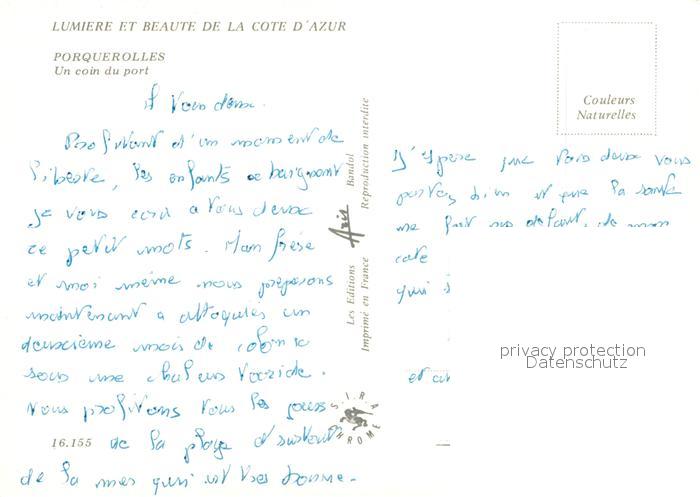 LUMIERE ET BEAUTE DE LA COTE D'AZUR
PORQUEROLLES
Un coin du port
Couleurs
Naturelles
A vous deux.
Profitant d'un moment de
liberte, les enfants se baignant
je vous ecris a vous deux
ce petit mots. Mon frère
et moi même nous préparons
maintenant a attaquer un
deuxième mois de colonie
sous une chaleur torride.
Nous profitons tous les jours
de la plage et surtout
de la mer qui est très bonne.
16.155
Les Editions Aris Bandol
Imprimé en France Reproduction interdite
S.I.R.A.
CHROME
J'espère que vous deux vous
portez bien et que la sante
ne fait pas defaut, de mon
cote
qui
et
privacy protection
Datenschutz